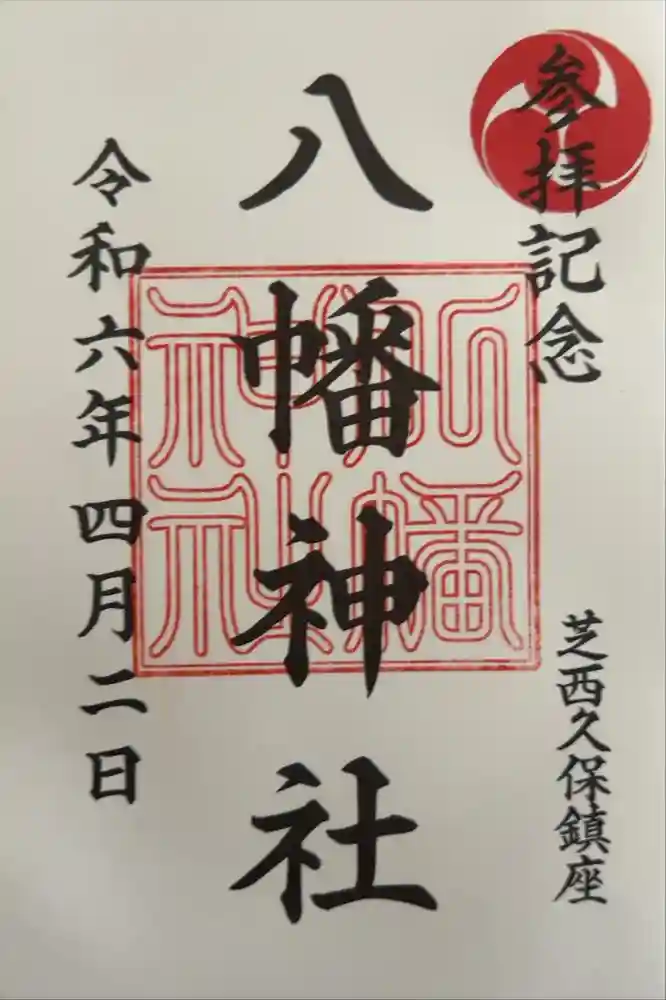 参拝記念
芝西久保鎮座
八幡神社
八幡
神社
令和六年四月二日